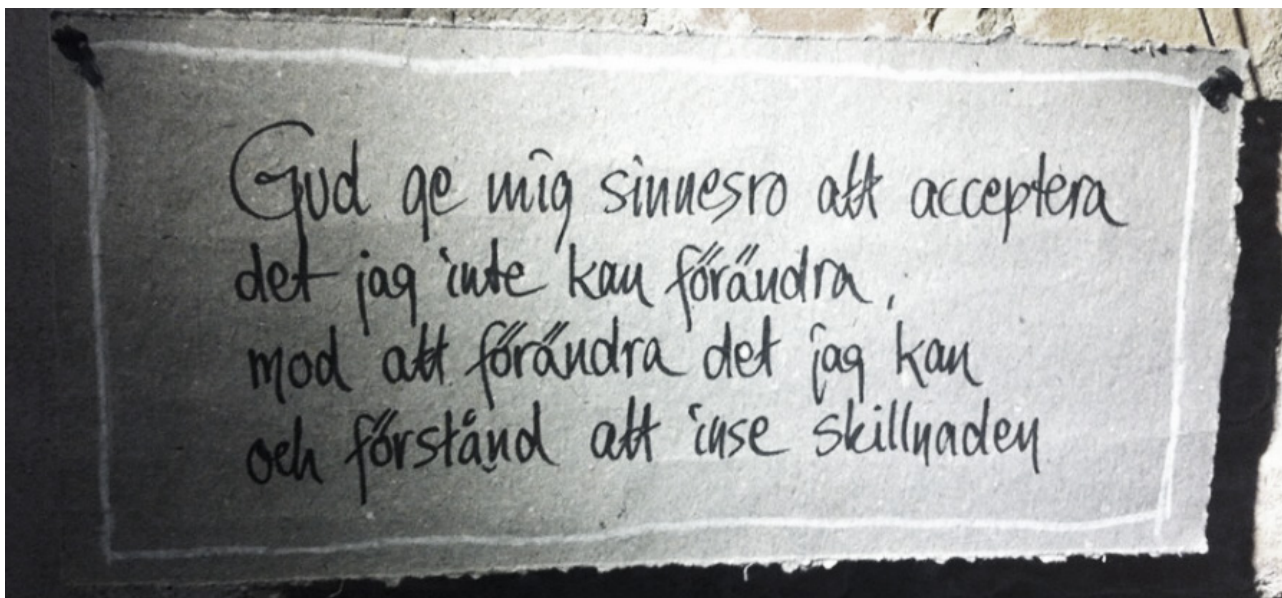 Gud ge mig sinnesro att acceptera
det jag inte kan förändra,
mod att förändra det jag kan
och förstånd att inse skillnaden